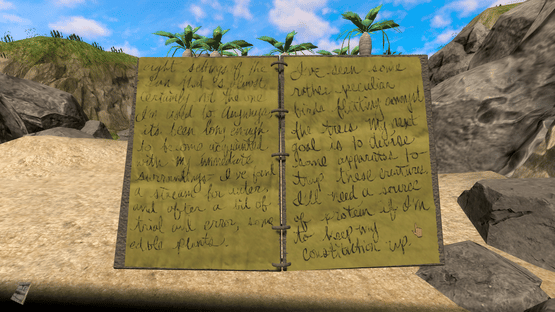 settings of the
certainly not no one
else said to anyways
its been long enough
to become acquainted
with my immediate
surroundings. I've found
a stream for water
and after a bit of
trial and error, some
edible plants.
I've seen some
rather peculiar
birds floating around
the trees. My next
goal is to devise
some apparatus to
trap these creatures.
I'll need a source
of protein if I'm
to keep my
constitution up.